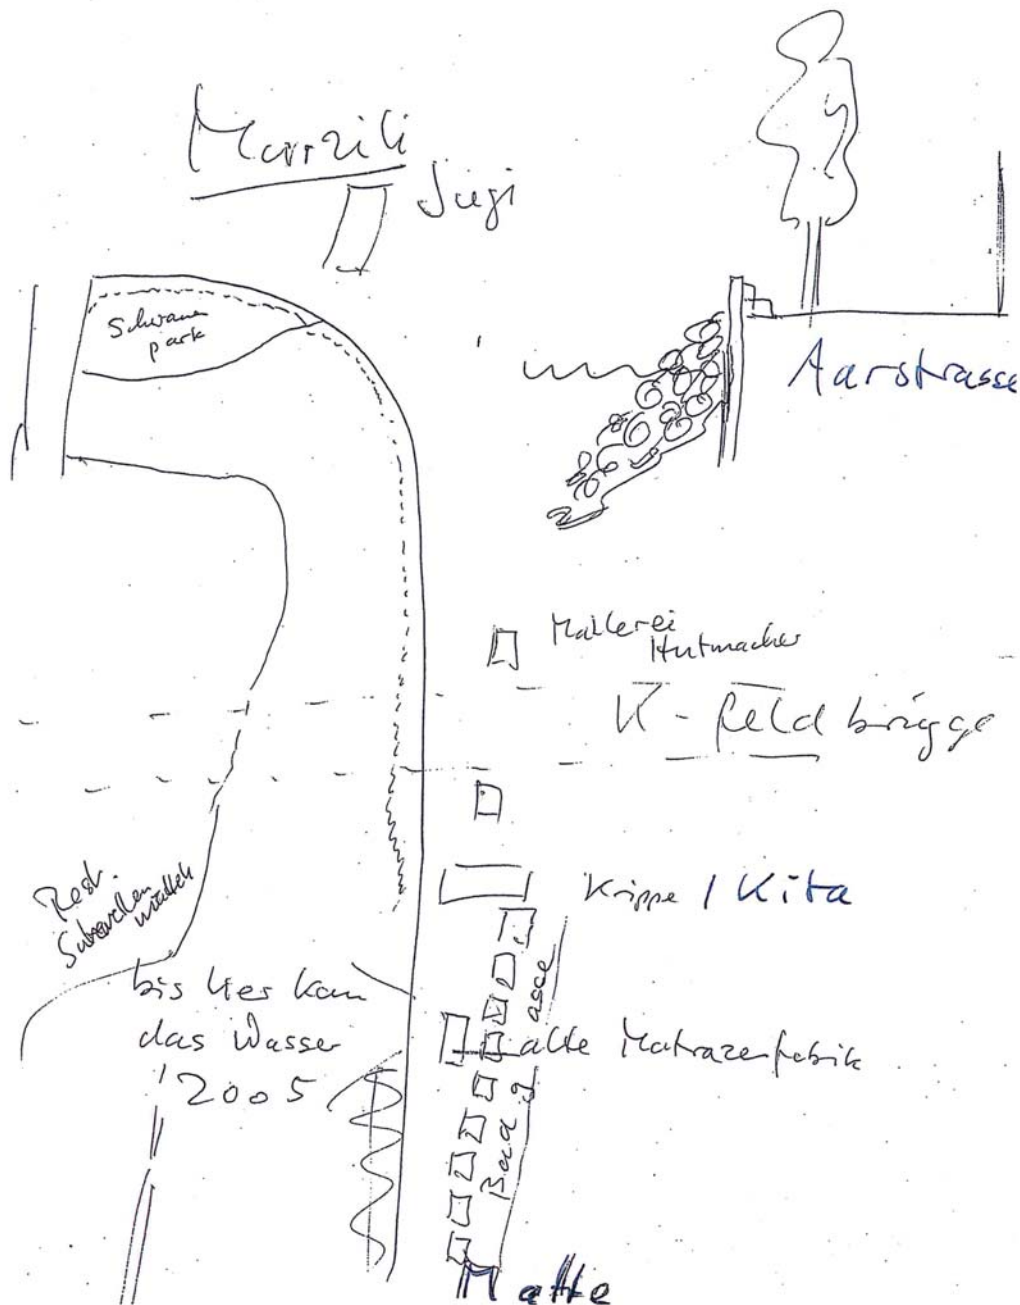 Marzili
Jugi
Schwanen
park
Aarstrasse
Mallerei
Hutmacher
K-feld brügge
Krippe / Kita
Rest.
Schwellen
mätteli
bis hier kam
das Wasser
2005
alte Matrazenfabrik
Badgasse
Matte